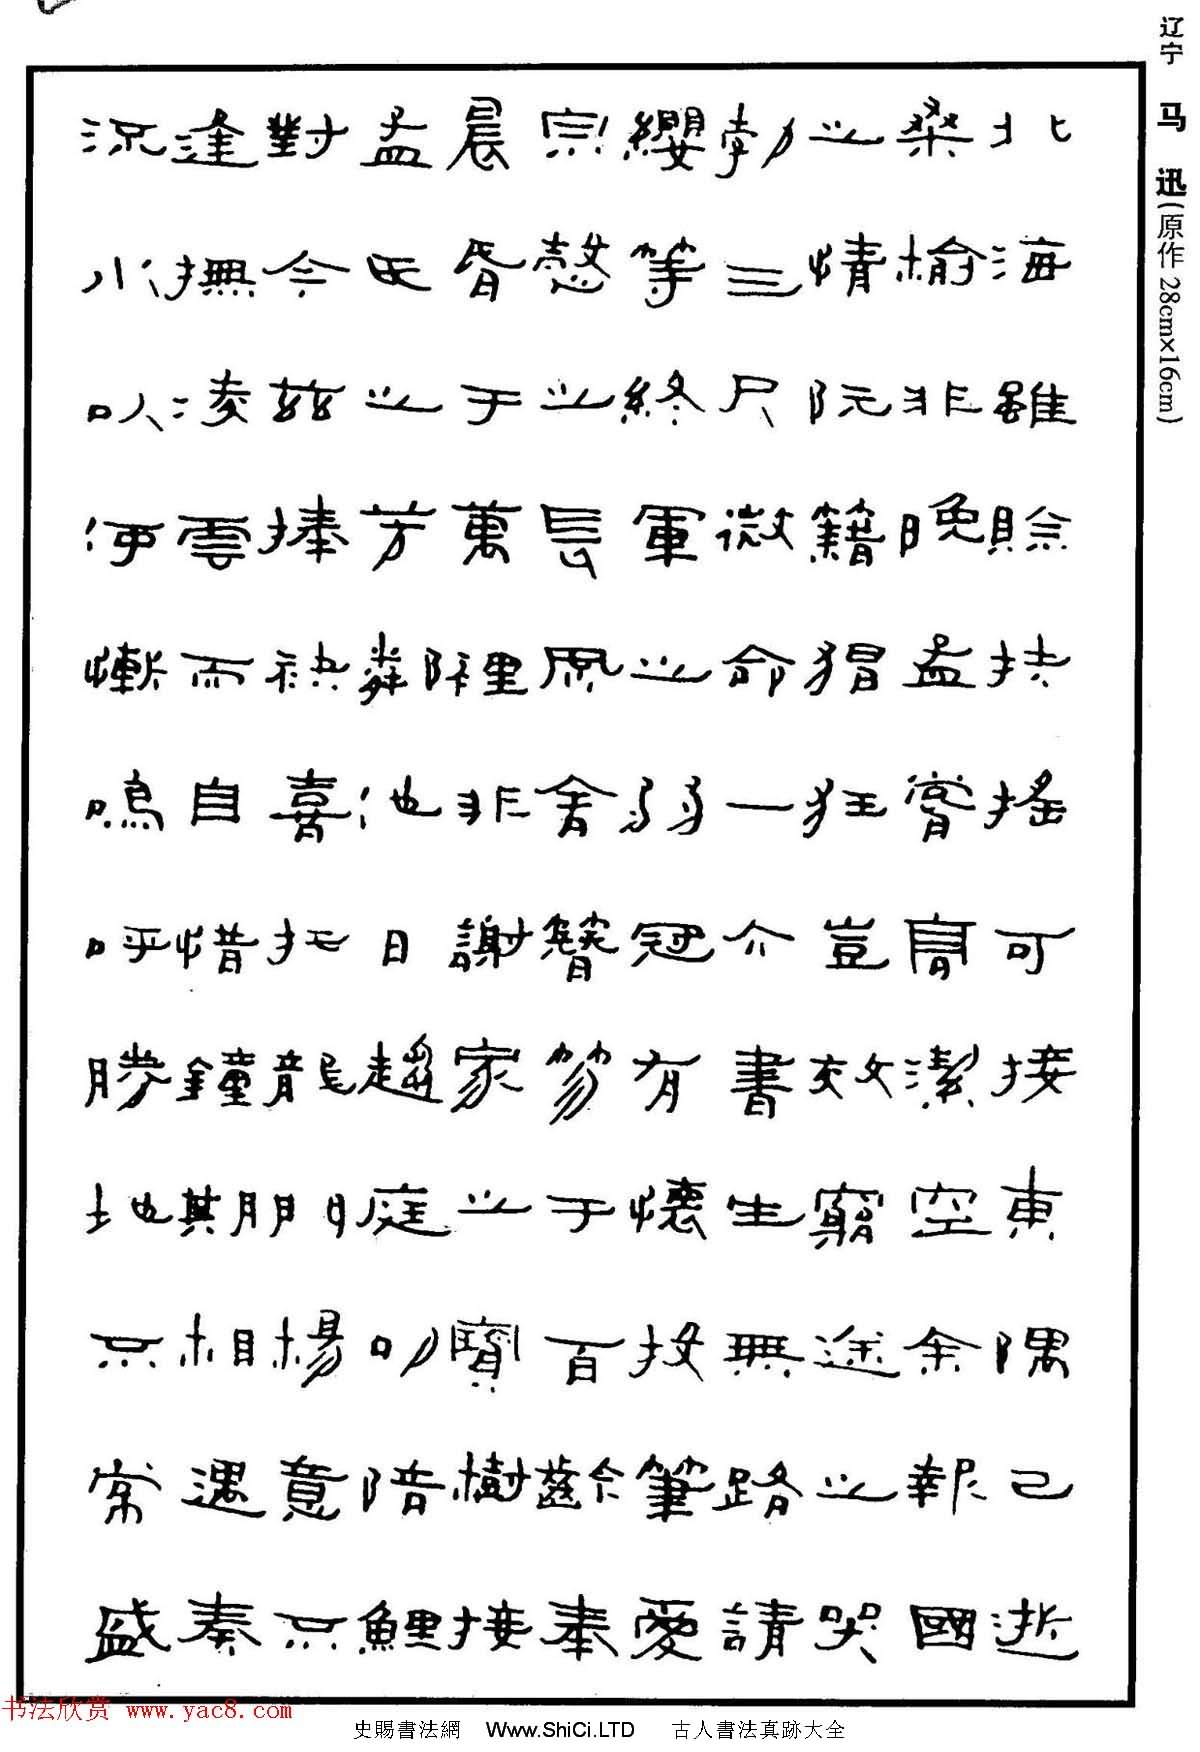 辽宁 马迅(原作28cm×16cm)
北海雖賒扶搖可接東隅已逝
桑榆非晚孟嘗高潔空余報國
之情阮籍猖狂豈效窮途之哭
勃三尺微命一介書生無路請
纓等終軍之弱冠有懷投筆愛
宗愨之長風舍簪笏于百齡奉
晨昏于萬里非謝家之寶樹接
孟氏之芳鄰他日趨庭叨陪鯉
對今茲捧袂喜托龍門楊意不
逢撫凌雲而自惜鐘期相遇奏
流水以何慚嗚呼勝地不常盛
书法欣赏 www.yac8.com
史賜書法網 Www.ShiCi.LTD 古人書法真跡大全